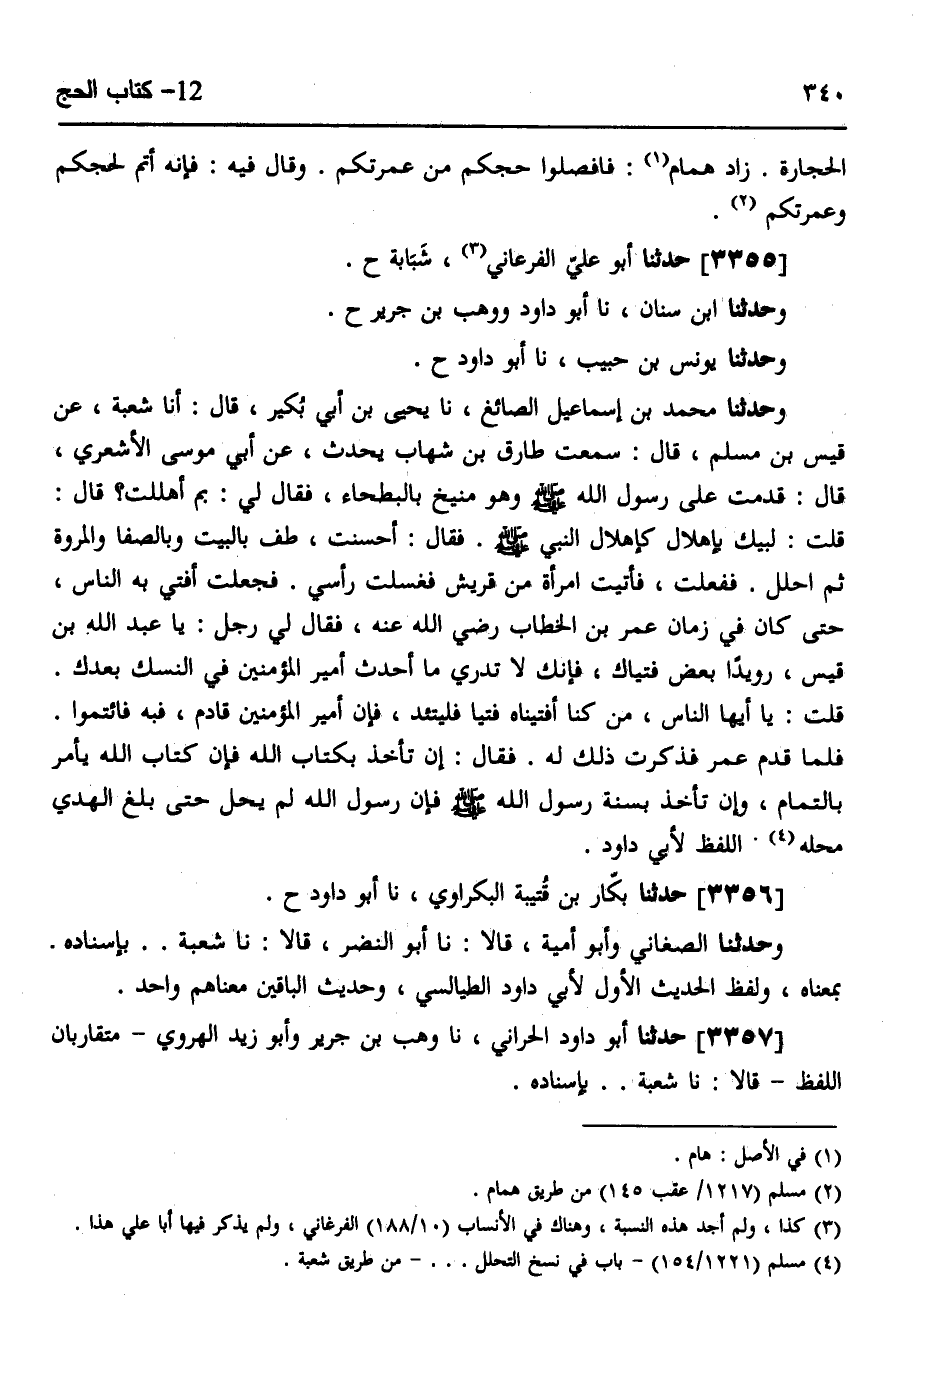 ٣٤٠
12- كتاب الحج
الحجارة . زاد همام(١) : فافصلوا حجكم من عمرتكم . وقال فيه : فإنه أتم لحجكم
وعمرتكم (٢) .
[٣٣٥٥] حدثنا أبو عليّ الفرعاني(٣) ، شَبَابة ح .
وحدثنا ابن سنان ، نا أبو داود ووهب بن جرير ح .
وحدثنا يونس بن حبيب ، نا أبو داود ح .
وحدثنا محمد بن إسماعيل الصائغ ، نا يحيى بن أبي بُكير ، قال : أنا شعبة ، عن
قيس بن مسلم ، قال : سمعت طارق بن شهاب يحدث ، عن أبي موسى الأشعري ،
قال : قدمت على رسول الله ﷺ وهو منيخ بالبطحاء ، فقال لي : بم أهللت؟ قال :
قلت : لبيك بإهلال كإهلال النبي ﷺ . فقال : أحسنت ، طف بالبيت وبالصفا والمروة
ثم احلل . ففعلت ، فأتيت امرأة من قريش فغسلت رأسي . فجعلت أفتي به الناس ،
حتى كان في زمان عمر بن الخطاب رضي الله عنه ، فقال لي رجل : يا عبد الله بن
قيس ، رويدًا بعض فتياك ، فإنك لا تدري ما أحدث أمير المؤمنين في النسك بعدك .
قلت : يا أيها الناس ، من كنا أفتيناه فتيا فليتئد ، فإن أمير المؤمنين قادم ، فبه فائتموا .
فلما قدم عمر فذكرت ذلك له . فقال : إن تأخذ بكتاب الله فإن كتاب الله يأمر
بالتمام ، وإن تأخذ بسنة رسول الله ﷺ فإن رسول الله لم يحل حتى بلغ الهدي
محله(٤) . اللفظ لأبي داود .
[٣٣٥٦] حدثنا بكّار بن قُتيبة البكراوي ، نا أبو داود ح .
وحدثنا الصغاني وأبو أمية ، قالا : نا أبو النضر ، قالا : نا شعبة . . بإسناده .
بمعناه ، ولفظ الحديث الأول لأبي داود الطيالسي ، وحديث الباقين معناهم واحد .
[٣٣٥٧] حدثنا أبو داود الحراني ، نا وهب بن جرير وأبو زيد الهروي – متقاربان
اللفظ – قالا : نا شعبة . . بإسناده .
(١) في الأصل : هام .
(٢) مسلم (١٢١٧/ عقب ١٤٥) من طريق همام .
(٣) كذا ، ولم أجد هذه النسبة ، وهناك في الأنساب (١٨٨/١٠) الفرغاني ، ولم يذكر فيها أبا علي هذا .
(٤) مسلم (١٥٤/١٢٢١) – باب في نسخ التحلل . . . – من طريق شعبة .